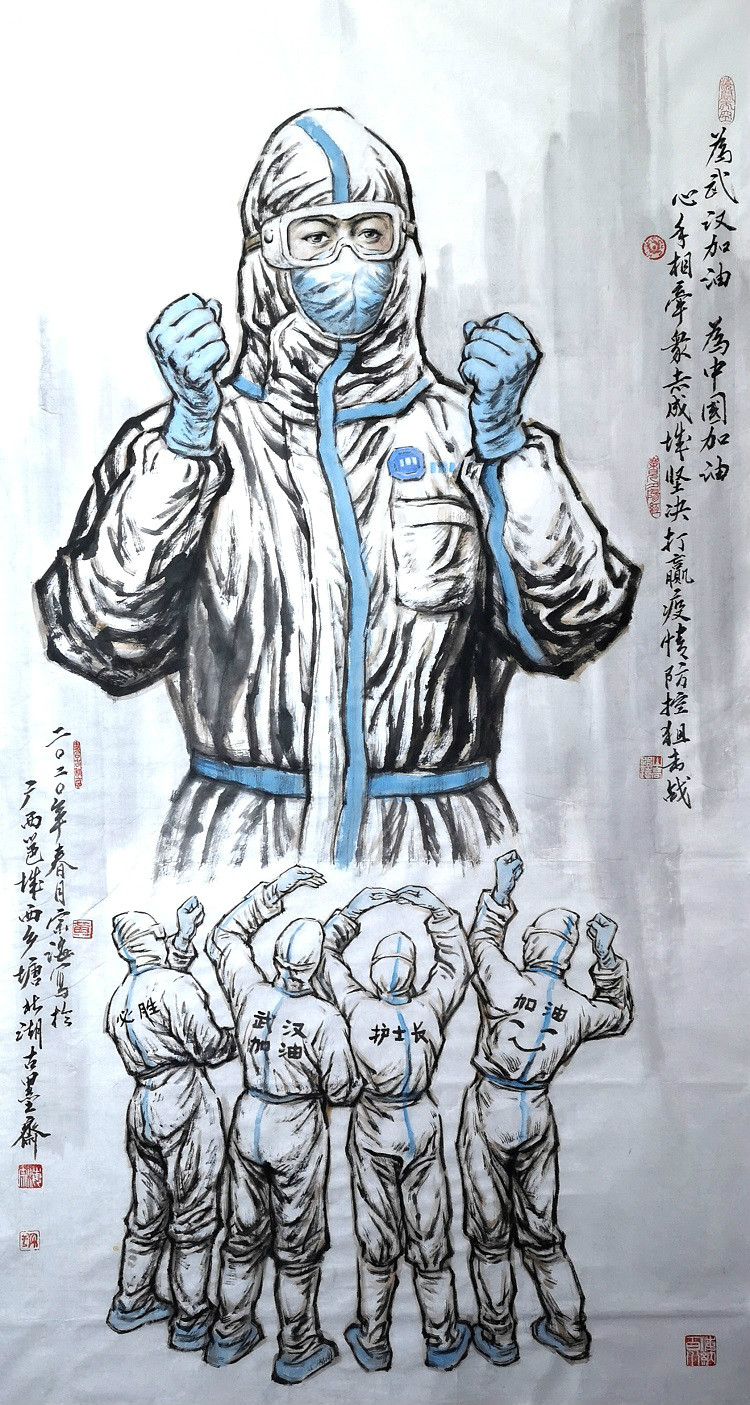 為武汉加油 為中国加油
心手相牽衆志成城坚决打赢疫情防控狙击战
二〇二〇年春月宗海写於
广西邕城西乡塘北湖古墨斋
必胜
武汉
加油
护士长
加油